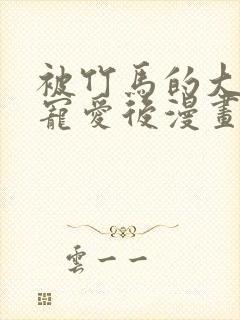 被竹馬的大
寵愛後漫畫
雲一一